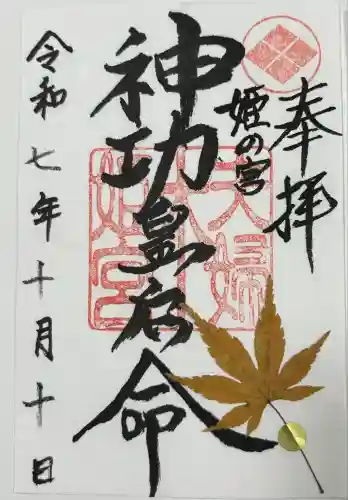 奉拝
姫の宮
神功皇后命
令和七年十月十日
夫婦
姫宮